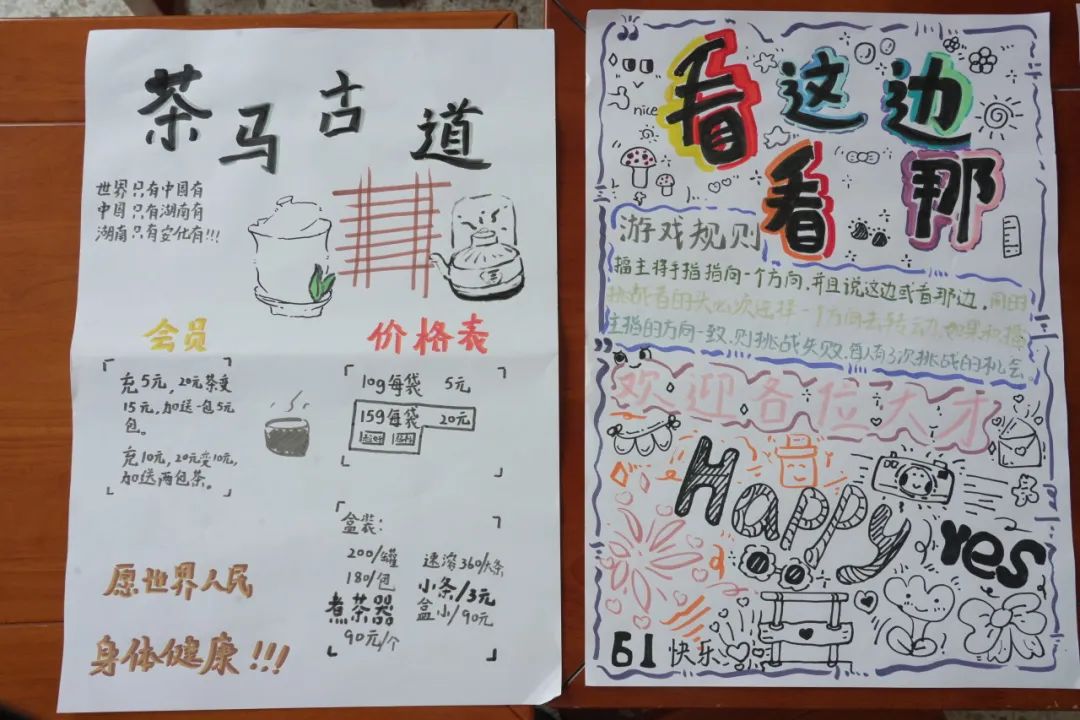 茶马古道
世界只有中国有
中国只有湖南有
湖南只有安化有!!!
会员
充5元，20元茶变
15元，加送一包5元
包。
充10元，20元变10元，
加送两包茶。
价格表
10g每袋 5元
15g每袋 20元
盒装：
200/罐
180/包
煮茶器
90元/个
速溶360/大条
小条/3元
盒小/90元
愿世界人民
身体健康!!!
看这边
看那
nice
游戏规则
擂主将手指指向一个方向，并且说这边或看那边，同时
挑战者的头必次选择一个方向去转动，如果和擂
主指的方向一致，则挑战失败，每人有3次挑战的机会。
欢迎各位大才
Happy
yes
61快乐